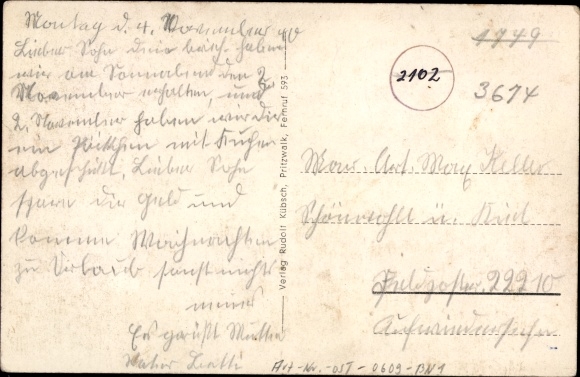 Montag d. 4. November 40
Lieber Sohn dein brief haben
wir am Sonnabend den 2
November erhalten, und
2. November haben wir dir
ein Päckchen mit Kuchen
abgeschickt, Lieber Sohn
spare dir Geld und
komme Waihnachten
zu Urlaub sonst nichts
neues
Es grüßt Mutter
Vater Betti
Verlag Rudolf Kübsch, Pritzwalk, Fernruf 593
1749
2102
3674
Mar. Art. Max Keller
Schönwohlt ü. Kiel
Feldpostnr. 22210
Art-Nr.-OST-0609-BN1